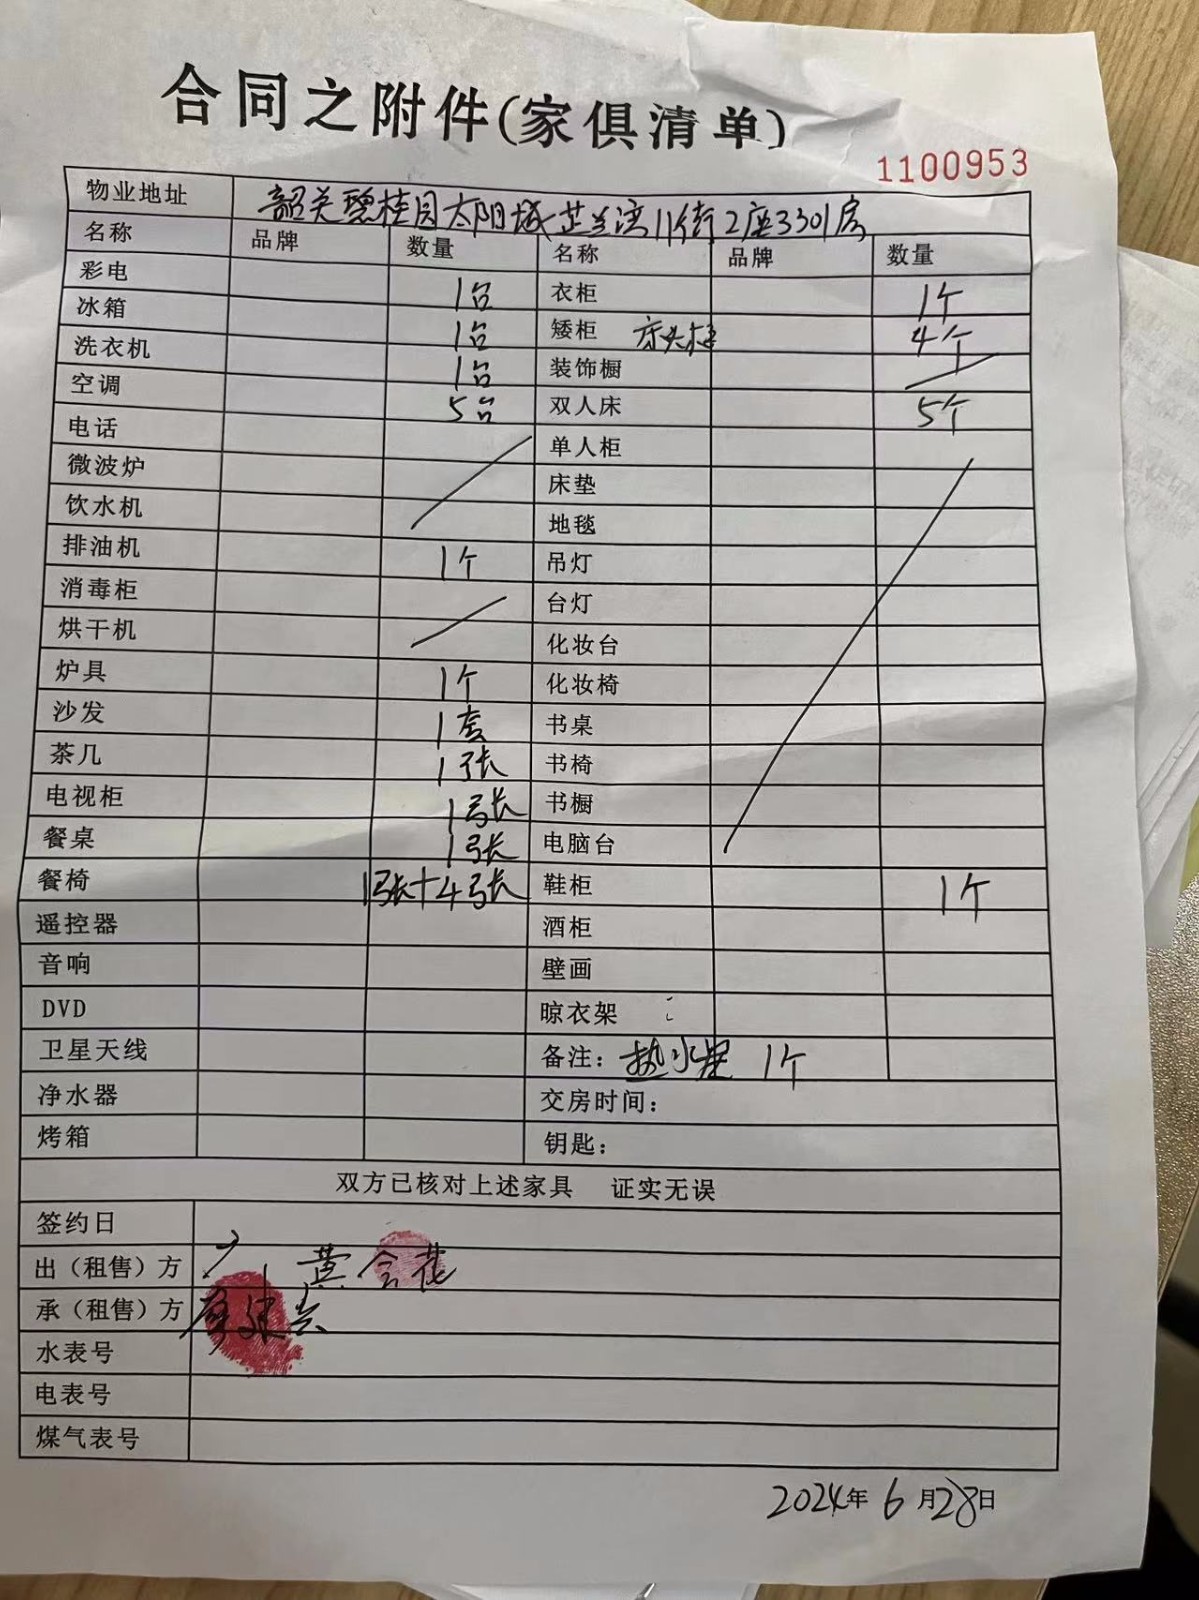 合同之附件(家俱清单)
1100953
物业地址 韶关碧桂园太阳城芷兰湾11街2座3301房
名称 品牌 数量 名称 品牌 数量
彩电 1台 衣柜 1个
冰箱 1台 矮柜 床头柜 4个
洗衣机 1台 装饰橱
空调 5台 双人床 5个
电话 单人柜
微波炉 床垫
饮水机 地毯
排油机 1个 吊灯
消毒柜 台灯
烘干机 化妆台
炉具 1个 化妆椅
沙发 1套 书桌
茶几 1张 书椅
电视柜 1张 书橱
餐桌 1张 电脑台
餐椅 1张+4张 鞋柜 1个
遥控器 酒柜
音响 壁画
DVD 晾衣架
卫星天线 备注：热水器 1个
净水器 交房时间：
烤箱 钥匙：
双方已核对上述家具 证实无误
签约日
出（租售）方 黄会花
承（租售）方
水表号
电表号
煤气表号
2024年6月28日